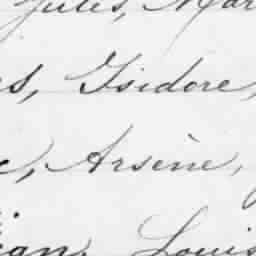 Jules, Mar
s, Isidore,
c, Arsène,
Louis